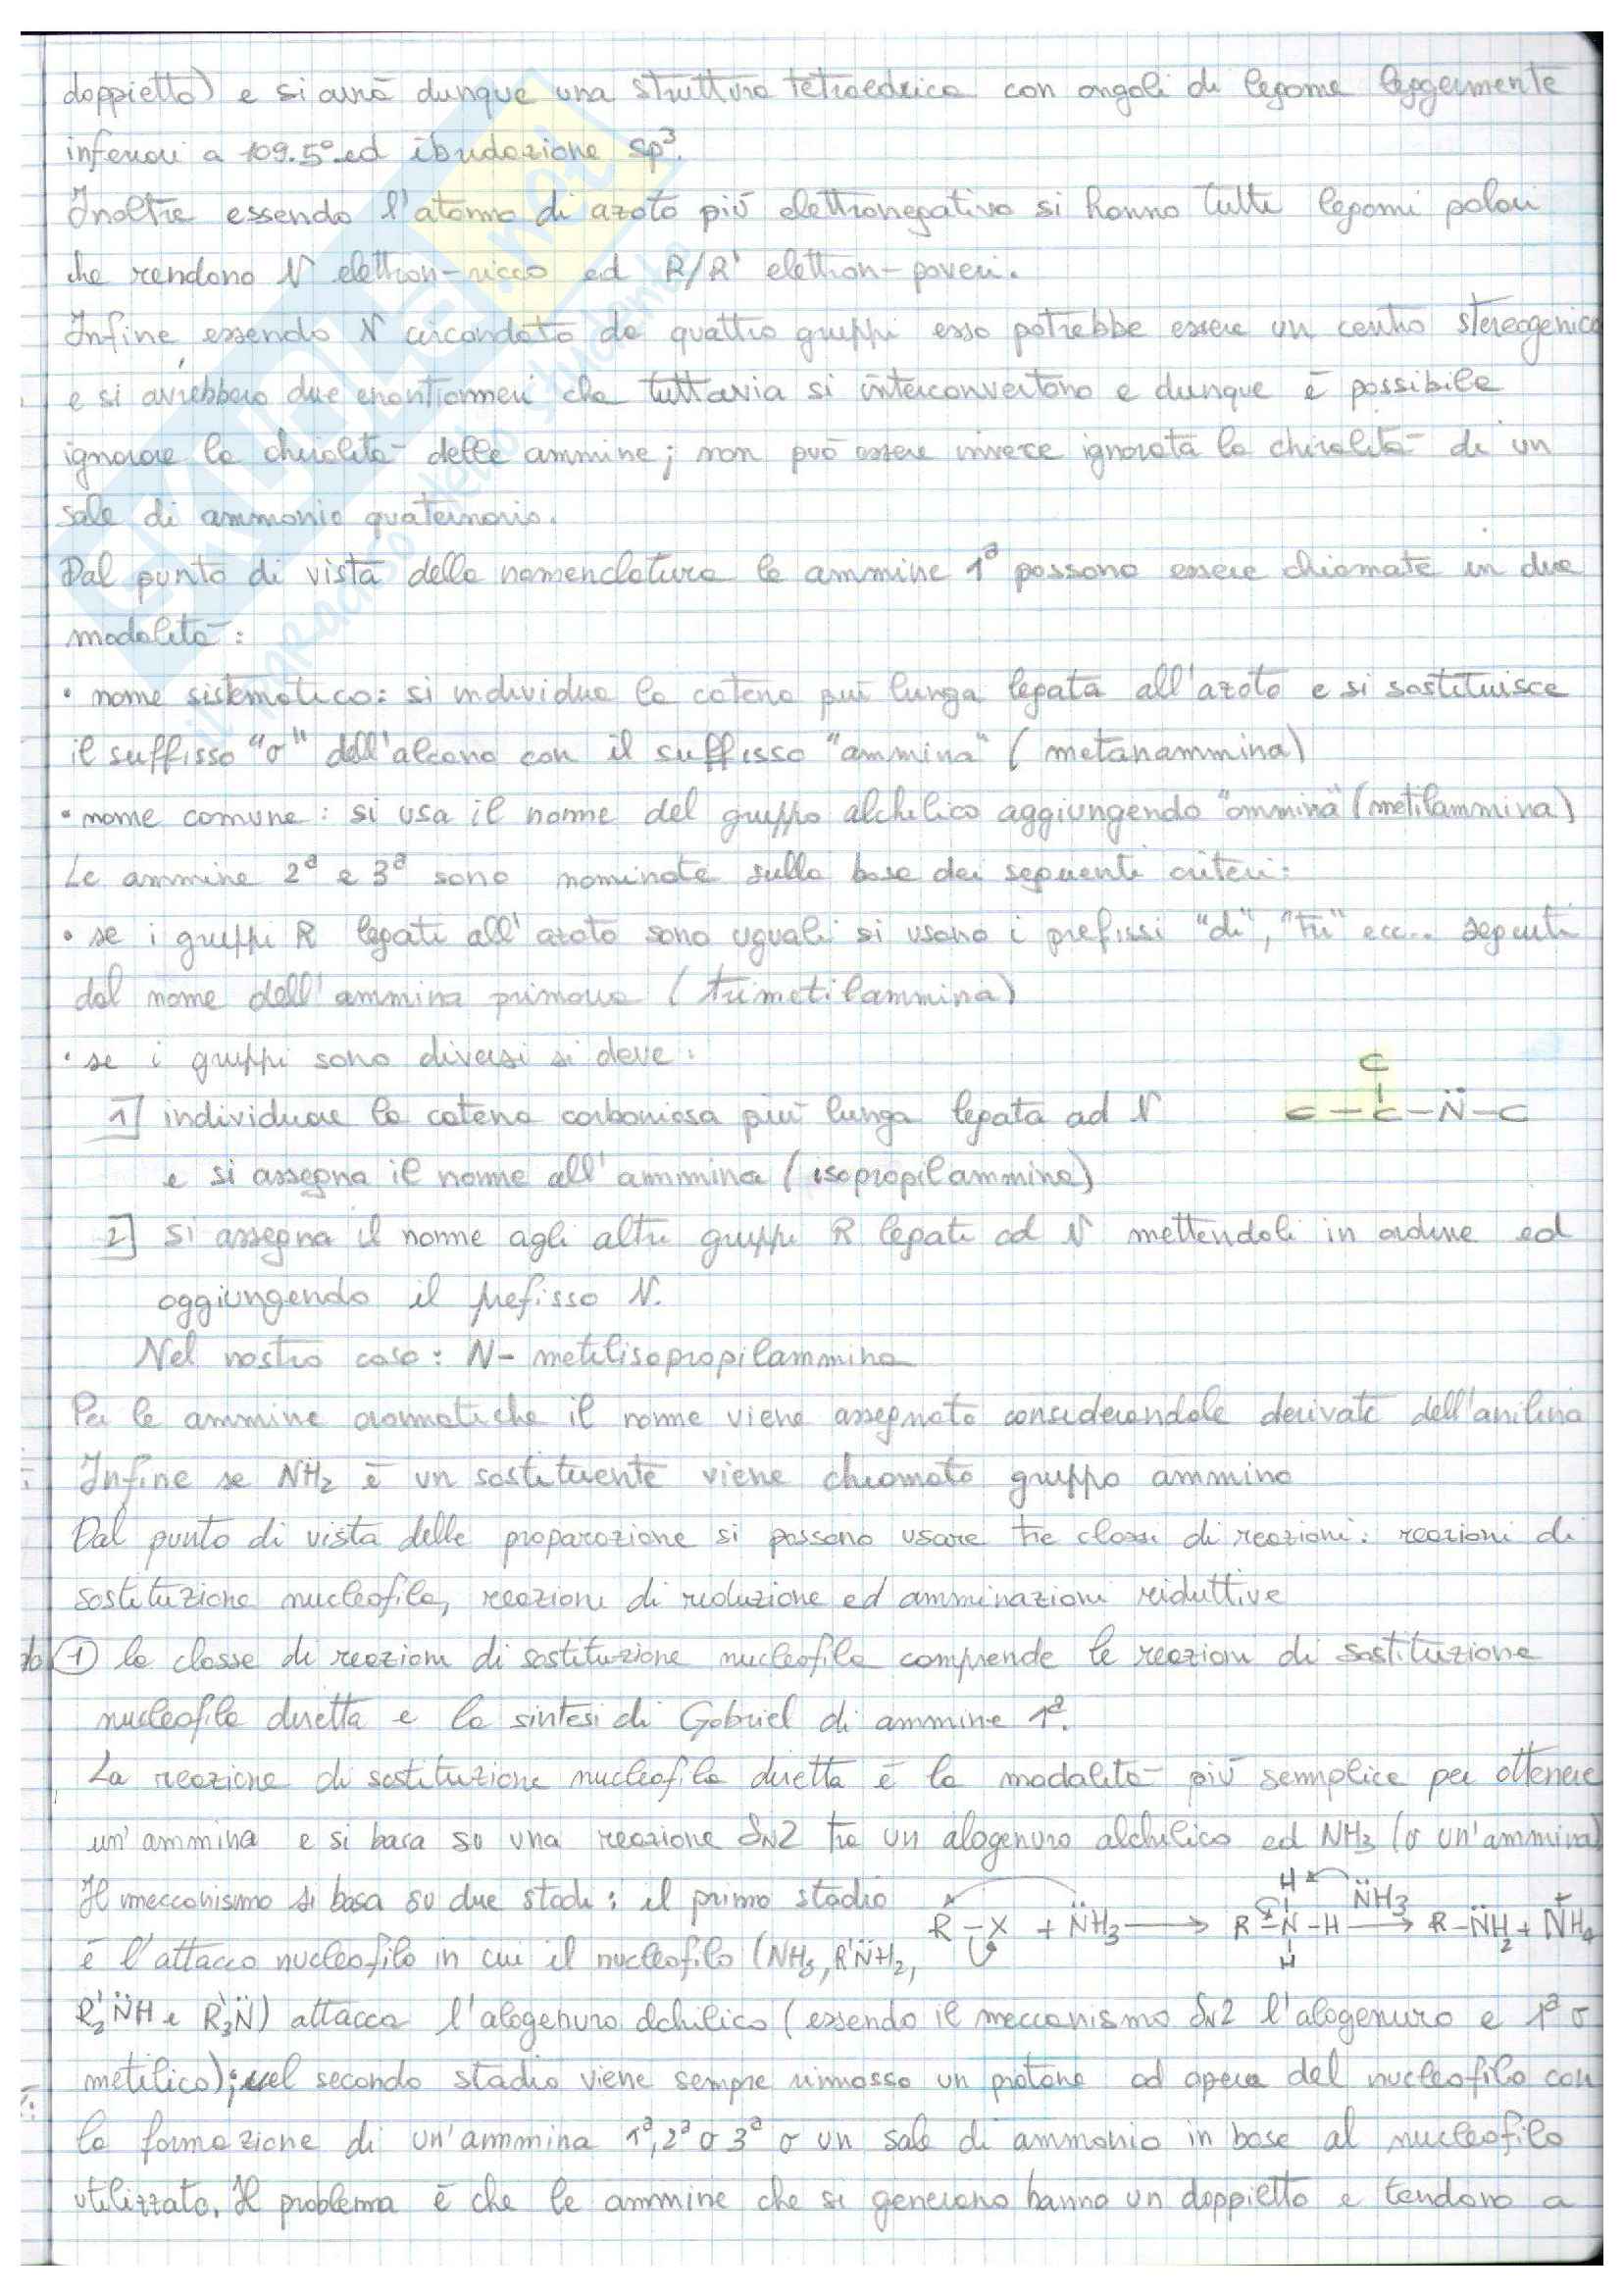 doppietto) e si avrà dunque una struttura tetraedrica con angoli di legame leggermente
inferiori a 109.5° ed ibridazione sp³.
Inoltre essendo l'atomo di azoto più elettronegativo si hanno tutti legami polari
che rendono N elettron-ricco ed R/R' elettron-poveri.
Infine, essendo N circondato da quattro gruppi esso potrebbe essere un centro stereogenico
e si avrebbero due enantiomeri che tuttavia si interconvertono e dunque è possibile
ignorare la chiralità delle ammine; non può essere invece ignorata la chiralità di un
sale di ammonio quaternario.
Dal punto di vista della nomenclatura le ammine 1ª possono essere chiamate in due
modalità:
• nome sistematico: si individua la catena più lunga legata all'azoto e si sostituisce
il suffisso "o" dell'alcano con il suffisso "ammina" (metanammina)
• nome comune: si usa il nome del gruppo alchilico aggiungendo "ammina" (metilammina)
Le ammine 2ª e 3ª sono nominate sulla base dei seguenti criteri:
• se i gruppi R legati all'azoto sono uguali si usano i prefissi "di", "tri" ecc... seguiti
dal nome dell'ammina primaria (trimetilammina)
• se i gruppi sono diversi si deve:
C
1] individuare la catena carboniosa più lunga legata ad N C – C – N̈ – C
e si assegna il nome all'ammina (isopropilammina)
2] si assegna il nome agli altri gruppi R legati ad N mettendoli in ordine ed
aggiungendo il prefisso N.
Nel nostro caso: N- metilisopropilammina
Per le ammine aromatiche il nome viene assegnato considerandole derivati dell'anilina
Infine se NH₂ è un sostituente viene chiamato gruppo ammino
Dal punto di vista della preparazione si possono usare tre classi di reazioni: reazioni di
sostituzione nucleofila, reazioni di riduzione ed amminazioni riduttive
① la classe di reazioni di sostituzione nucleofila comprende le reazioni di sostituzione
nucleofila diretta e la sintesi di Gabriel di ammine 1ª.
La reazione di sostituzione nucleofila diretta è la modalità più semplice per ottenere
un'ammina e si basa su una reazione SN2 tra un alogenuro alchilico ed NH₃ (o un'ammina)
Il meccanismo si basa su due stadi: il primo stadio
H N̈H₃
R – X + N̈H₃ ⟶ R – N – H ⟶ R – N̈H₂ + N⁺H₄
H
è l'attacco nucleofilo in cui il nucleofilo (NH₃, R'N̈H₂,
R'₂N̈H e R'₃N̈) attacca l'alogenuro alchilico (essendo il meccanismo SN2 l'alogenuro è 1ª o
metilico); nel secondo stadio viene sempre rimosso un protone ad opera del nucleofilo con
la formazione di un'ammina 1ª, 2ª o 3ª o un sale di ammonio in base al nucleofilo
utilizzato. Il problema è che le ammine che si generano hanno un doppietto e tendono a